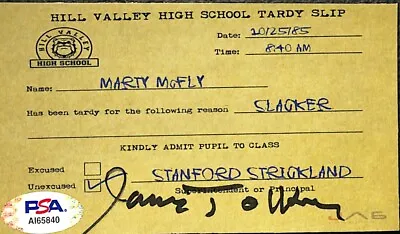 HILL VALLEY HIGH SCHOOL TARDY SLIP
HILL VALLEY
HIGH SCHOOL
Date: 20/25/85
Time: 8:40 AM
Name: MARTY McFLY
Has been tardy for the following reason SLACKER
KINDLY ADMIT PUPIL TO CLASS
Excused
Unexcused
STANFORD STRICKLAND
Superintendent or Principal
James Tolkan
PSA
AI65840